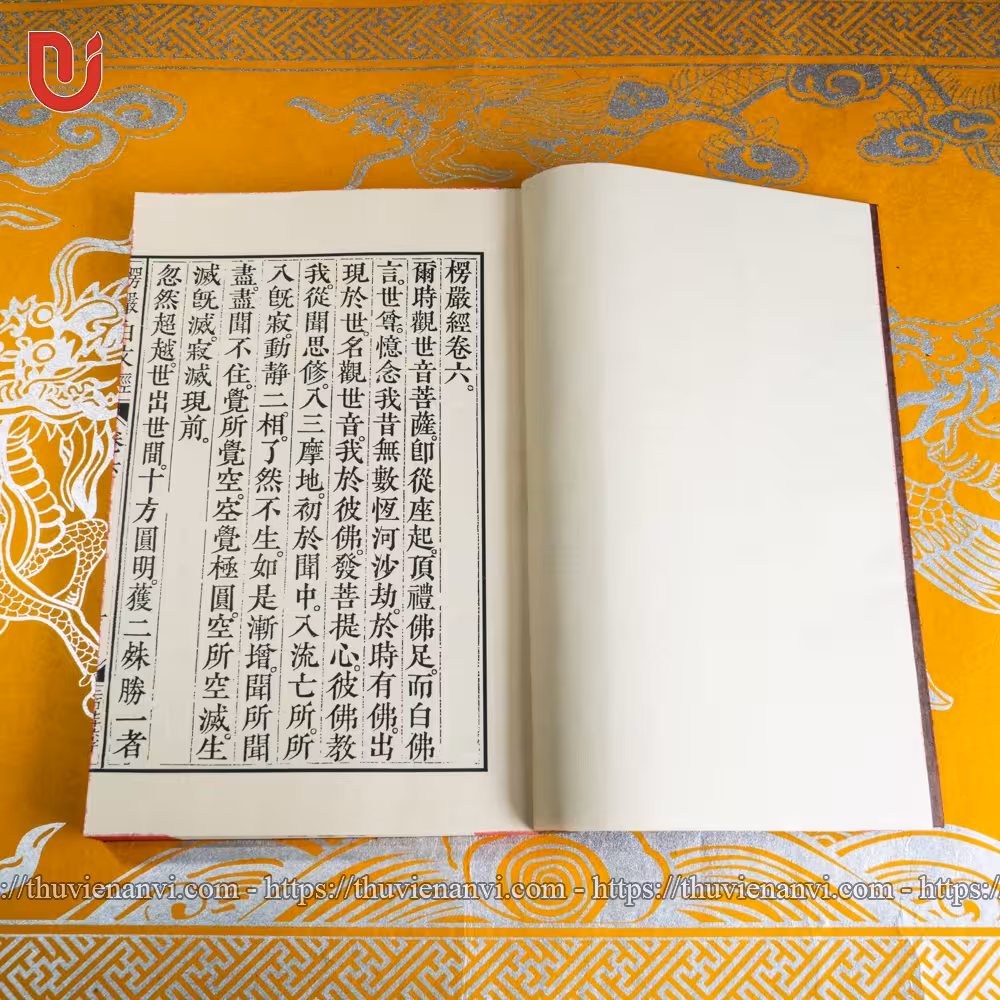 楞嚴經卷六。
爾時觀世音菩薩。卽從座起。頂禮佛足。而白佛
言。世尊。憶念我昔無數恆河沙劫。於時有佛。出
現於世。名觀世音。我於彼佛。發菩提心。彼佛教
我。從聞思修。入三摩地。初於聞中。入流亡所。所
入旣寂。動静二相。了然不生。如是漸增。聞所聞
盡。盡聞不住。覺所覺空。空覺極圓。空所空滅。生
滅旣滅。寂滅現前。
忽然超越。世出世間。十方圓明。獲二殊勝一者
楞嚴
://thuvienanvi.com - https://thuvienanvi.com - https://thuvienanvi.com - https://